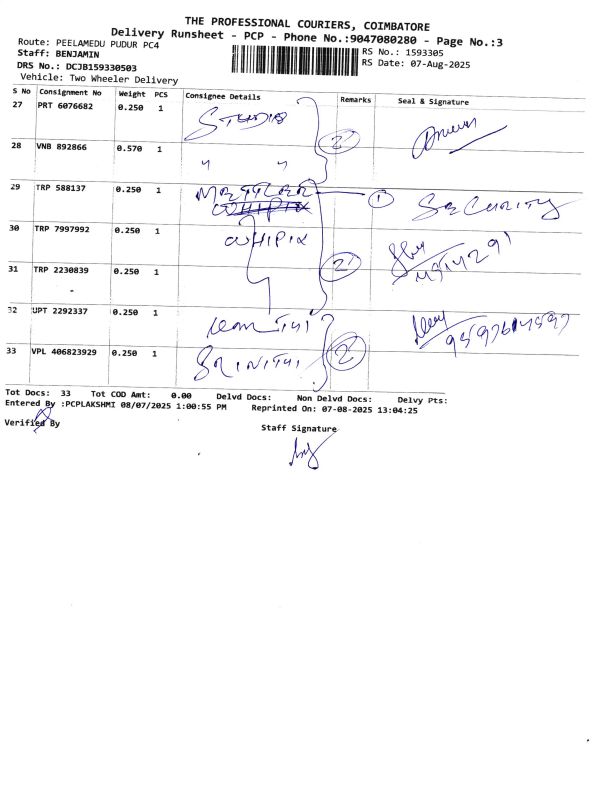 THE PROFESSIONAL COURIERS, COIMBATORE
Delivery Runsheet - PCP - Phone No.:9047080280 - Page No.:3
Route: PEELAMEDU PUDUR PC4
RS No.: 1593305
Staff: BENJAMIN
RS Date: 07-Aug-2025
DRS No.: DCJB159330503
Vehicle: Two Wheeler Delivery
S No Consignment No Weight PCS Consignee Details Remarks Seal & Signature
27 PRT 6076682 0.250 1 2
28 VNB 892866 0.570 1 " "
29 TRP 588137 0.250 1 METTLER 1 SECURITY
30 TRP 7997992 0.250 1 WHIPIX
31 TRP 2230839 0.250 1 2
32 UPT 2292337 0.250 1
33 VPL 406823929 0.250 1 2
Tot Docs: 33 Tot COD Amt: 0.00 Delvd Docs: Non Delvd Docs: Delvy Pts:
Entered By :PCPLAKSHMI 08/07/2025 1:00:55 PM Reprinted On: 07-08-2025 13:04:25
Verified By
Staff Signature